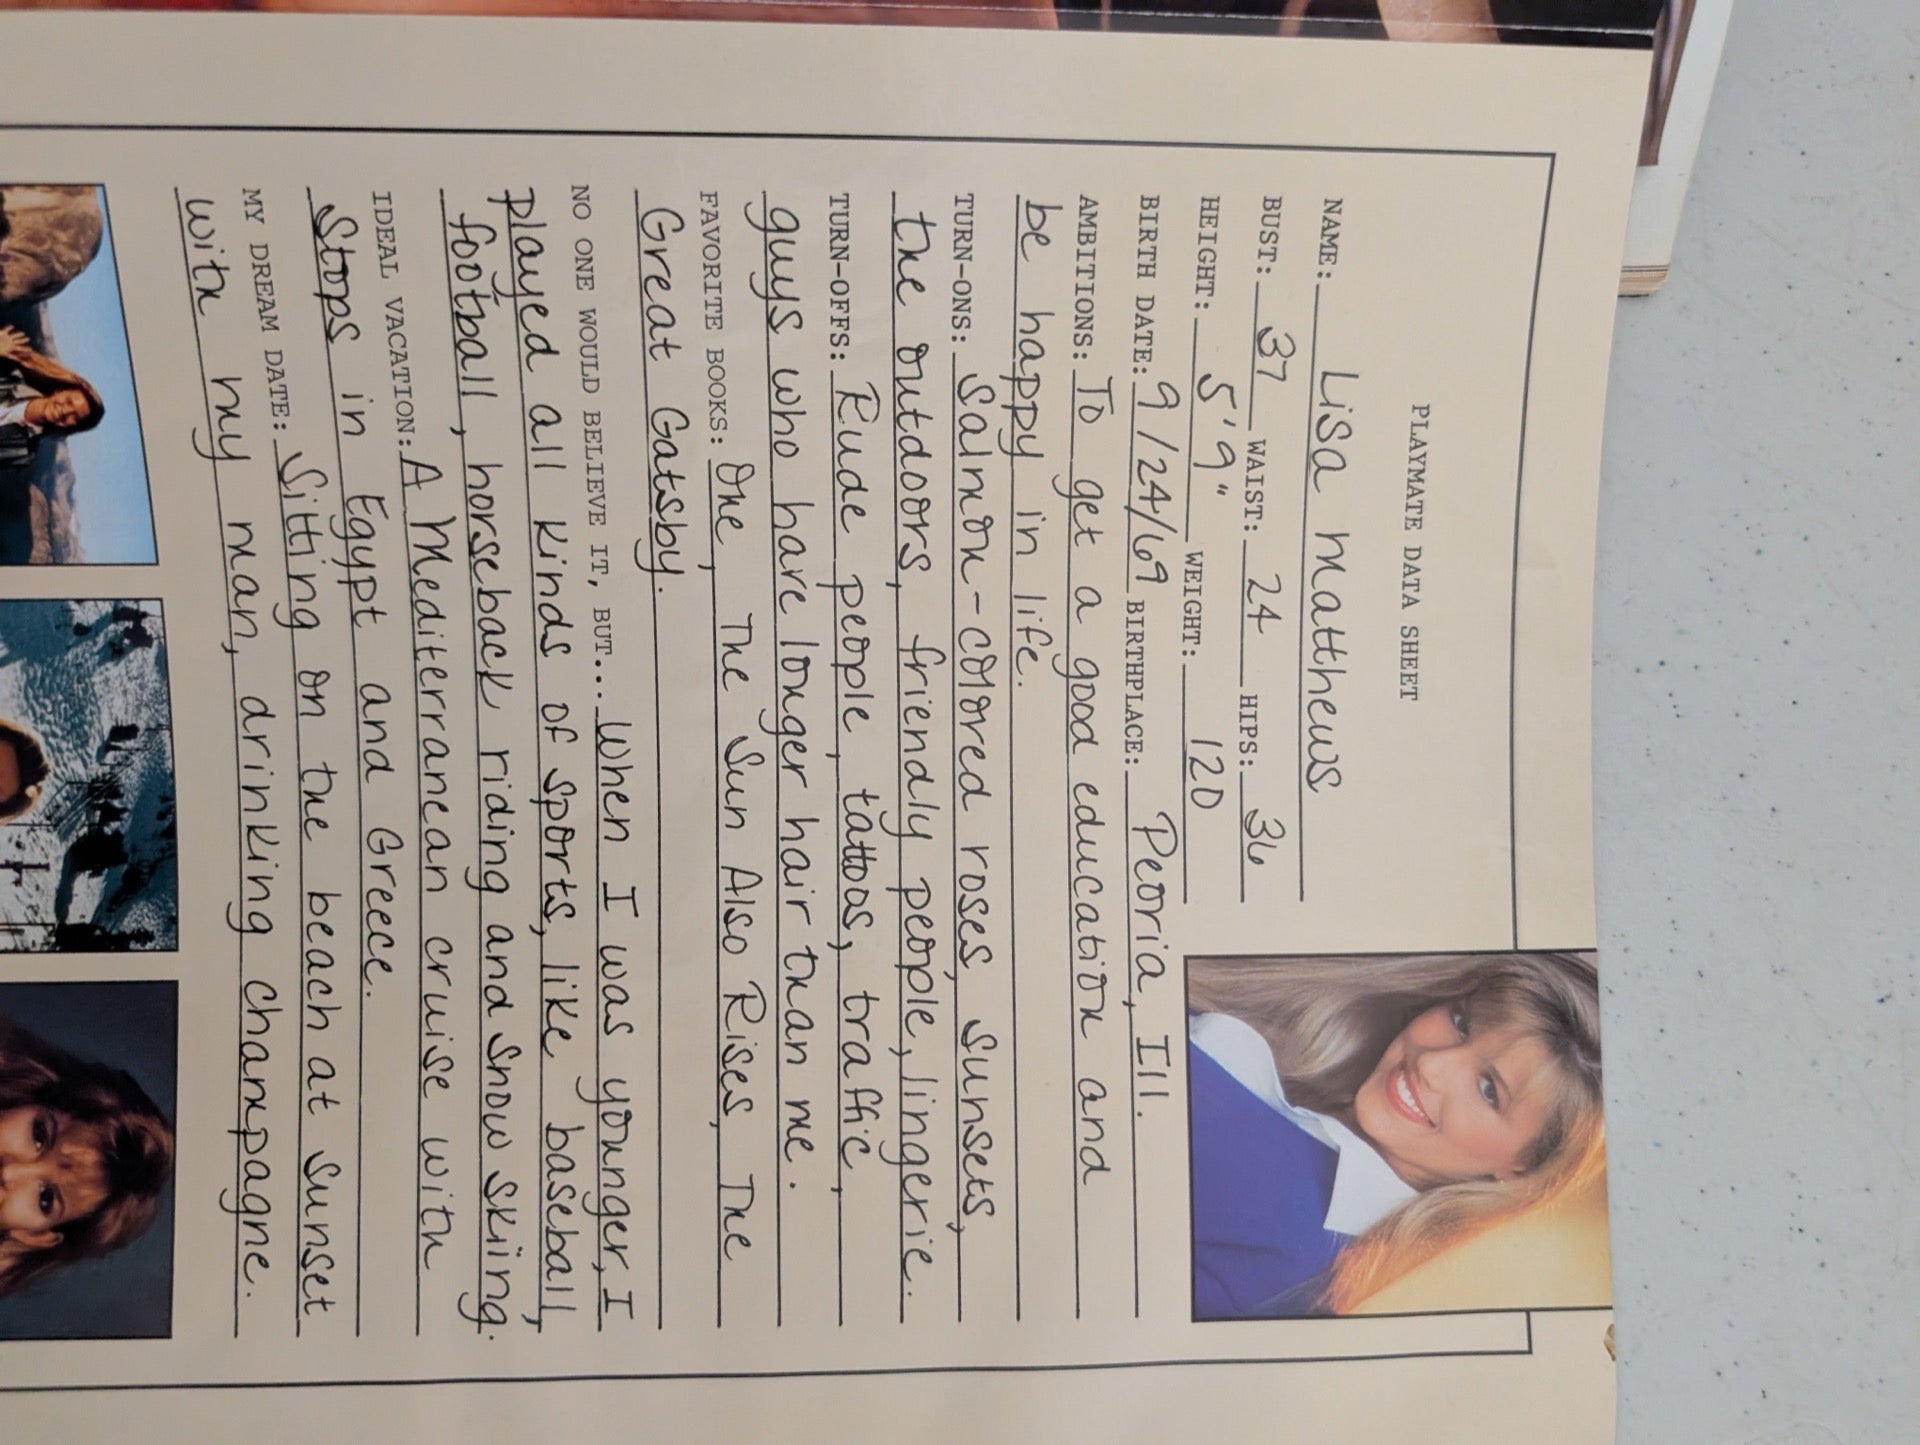 PLAYMATE DATA SHEET
NAME: Lisa Matthews
BUST: 37 WAIST: 24 HIPS: 36
HEIGHT: 5'9" WEIGHT: 120
BIRTH DATE: 9/24/69 BIRTHPLACE: Peoria, Ill.
AMBITIONS: To get a good education and
be happy in life.
TURN-ONS: Salmon-colored roses, sunsets,
the outdoors, friendly people, lingerie.
TURN-OFFS: Rude people, tattoos, traffic,
guys who have longer hair than me.
FAVORITE BOOKS: One, The Sun Also Rises, The
Great Gatsby.
NO ONE WOULD BELIEVE IT, BUT... When I was younger, I
played all kinds of sports, like baseball,
football, horseback riding and snow skiing.
IDEAL VACATION: A Mediterranean cruise with
stops in Egypt and Greece.
MY DREAM DATE: Sitting on the beach at sunset
with my man, drinking champagne.